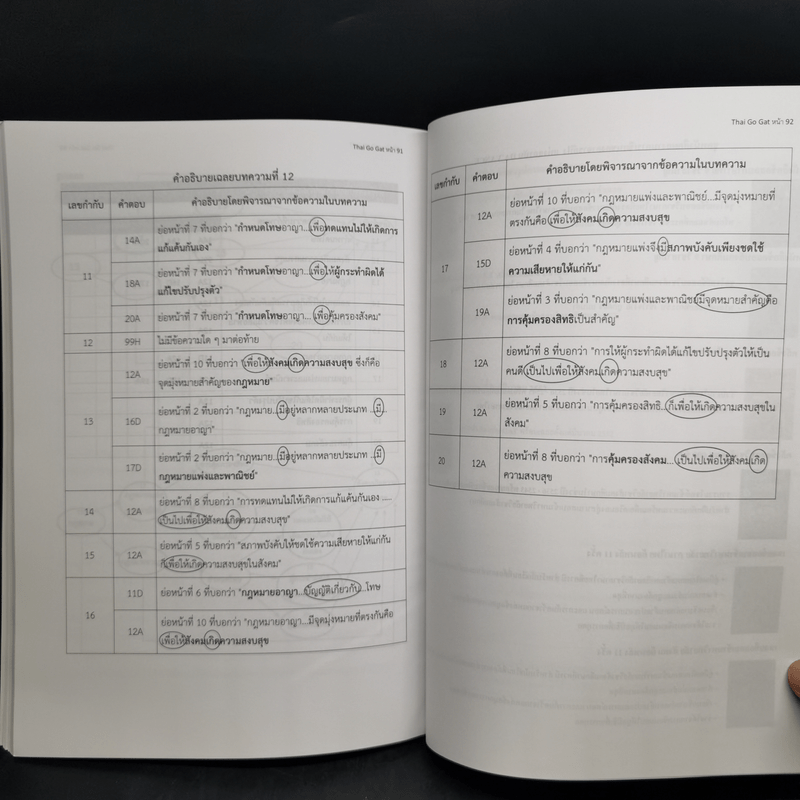 Thai Go Gat หน้า 91
คำอธิบายเฉลยบทความที่ 12
เลขกำกับ คำตอบ คำอธิบายโดยพิจารณาจากข้อความในบทความ
11 14A ย่อหน้าที่ 7 ที่บอกว่า "กำหนดโทษอาญา...เพื่อทดแทนไม่ให้เกิดการ
แก้แค้นกันเอง"
18A ย่อหน้าที่ 7 ที่บอกว่า "กำหนดโทษอาญา...เพื่อให้ผู้กระทำผิดได้
แก้ไขปรับปรุงตัว"
20A ย่อหน้าที่ 7 ที่บอกว่า "กำหนดโทษอาญา...เพื่อคุ้มครองสังคม"
12 99H ไม่มีข้อความใด ๆ มาต่อท้าย
13 12A ย่อหน้าที่ 10 ที่บอกว่า "เพื่อให้สังคมเกิดความสงบสุข ซึ่งก็คือ
จุดมุ่งหมายสำคัญของกฎหมาย"
16D ย่อหน้าที่ 2 ที่บอกว่า "กฎหมาย...มีอยู่หลากหลายประเภท ...มี
กฎหมายอาญา"
17D ย่อหน้าที่ 2 ที่บอกว่า "กฎหมาย...มีอยู่หลากหลายประเภท ...มี
กฎหมายแพ่งและพาณิชย์"
14 12A ย่อหน้าที่ 8 ที่บอกว่า "การทดแทนไม่ให้เกิดการแก้แค้นกันเอง .....
เป็นไปเพื่อให้สังคมเกิดความสงบสุข"
15 12A ย่อหน้าที่ 5 ที่บอกว่า "สภาพบังคับให้ชดใช้ความเสียหายให้แก่กัน
ก็เพื่อให้เกิดความสงบสุขในสังคม"
16 11D ย่อหน้าที่ 6 ที่บอกว่า "กฎหมายอาญา...บัญญัติเกี่ยวกับ...โทษ
12A ย่อหน้าที่ 10 ที่บอกว่า "กฎหมายอาญา...มีจุดมุ่งหมายที่ตรงกันคือ
เพื่อให้สังคมเกิดความสงบสุข
Thai Go Gat หน้า 92
เลขกำกับ คำตอบ คำอธิบายโดยพิจารณาจากข้อความในบทความ
17 12A ย่อหน้าที่ 10 ที่บอกว่า "กฎหมายแพ่งและพาณิชย์...มีจุดมุ่งหมายที่
ตรงกันคือเพื่อให้สังคมเกิดความสงบสุข
15D ย่อหน้าที่ 4 ที่บอกว่า "กฎหมายแพ่งจึงมีสภาพบังคับเพียงชดใช้
ความเสียหายให้แก่กัน"
19A ย่อหน้าที่ 3 ที่บอกว่า "กฎหมายแพ่งและพาณิชย์มีจุดหมายสำคัญคือ
การคุ้มครองสิทธิเป็นสำคัญ"
18 12A ย่อหน้าที่ 8 ที่บอกว่า "การให้ผู้กระทำผิดได้แก้ไขปรับปรุงตัวให้เป็น
คนดีเป็นไปเพื่อให้สังคมเกิดความสงบสุข"
19 12A ย่อหน้าที่ 5 ที่บอกว่า "การคุ้มครองสิทธิ...ก็เพื่อให้เกิดความสงบสุขใน
สังคม"
20 12A ย่อหน้าที่ 8 ที่บอกว่า "การคุ้มครองสังคม...เป็นไปเพื่อให้สังคมเกิด
ความสงบสุข